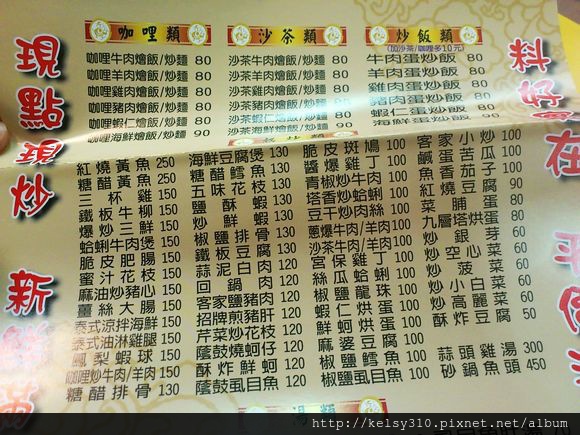 咖哩類
咖哩牛肉燴飯/炒麵 80
咖哩羊肉燴飯/炒麵 80
咖哩雞肉燴飯/炒麵 80
咖哩豬肉燴飯/炒麵 80
咖哩蝦仁燴飯/炒麵 80
咖哩海鮮燴飯/炒麵 90
沙茶類
沙茶牛肉燴飯/炒麵 80
沙茶羊肉燴飯/炒麵 80
沙茶雞肉燴飯/炒麵 80
沙茶豬肉燴飯/炒麵 80
沙茶蝦仁燴飯/炒麵 80
沙茶海鮮燴飯/炒麵 90
炒飯類
(加沙茶/咖哩多10元)
牛肉蛋炒飯 80
羊肉蛋炒飯 80
雞肉蛋炒飯 80
豬肉蛋炒飯 80
蝦仁蛋炒飯 80
海鮮蛋炒飯 90
現點現炒
新鮮
料好
在
紅燒黃魚 250
糖醋黃魚 250
三杯雞 150
鐵板牛柳 150
爆炒三鮮 150
蛤蜊牛肉煲 150
脆皮肥腸 150
蜜汁花枝 150
麻油炒豬心 150
薑絲大腸 150
泰式涼拌海鮮 150
泰式油淋雞腿 150
鳳梨蝦球 150
咖哩炒牛肉/羊肉 150
糖醋排骨 130
海鮮豆腐煲 130
糖醋鱈魚 130
五味花枝 130
鹽酥蝦 130
炒鮮蝦 130
椒鹽排骨 130
鐵板豆腐 130
蒜泥白肉 120
回鍋肉 120
客家鹽豬肉 120
招牌煎豬肝 120
芹菜炒花枝 120
蔭鼓燒蚵仔 120
酥炸鮮蚵 120
蔭鼓虱目魚 120
脆皮斑鳩 100
醬爆雞丁 100
青椒炒牛肉 100
塔香炒蛤蜊 100
豆干炒肉絲 100
蔥爆牛肉/羊肉 100
沙茶牛肉/羊肉 100
宮保雞丁 100
絲瓜蛤蜊 100
椒鹽龍珠 100
蝦仁烘蛋 100
鮮蚵烘蛋 100
麻婆豆腐 100
椒鹽鱈魚 100
椒鹽虱目魚 100
客家小炒 100
鹹蛋苦瓜 100
魚香茄子 100
紅燒豆腐 90
菜脯蛋 80
九層塔烘蛋 80
炒銀芽 60
炒空心菜 60
炒菠菜 60
炒小白菜 60
炒高麗菜 60
酥炸豆腐 50
蒜頭雞湯 300
砂鍋魚頭 450
湯類
http://kelsy310.pixnet.net/album